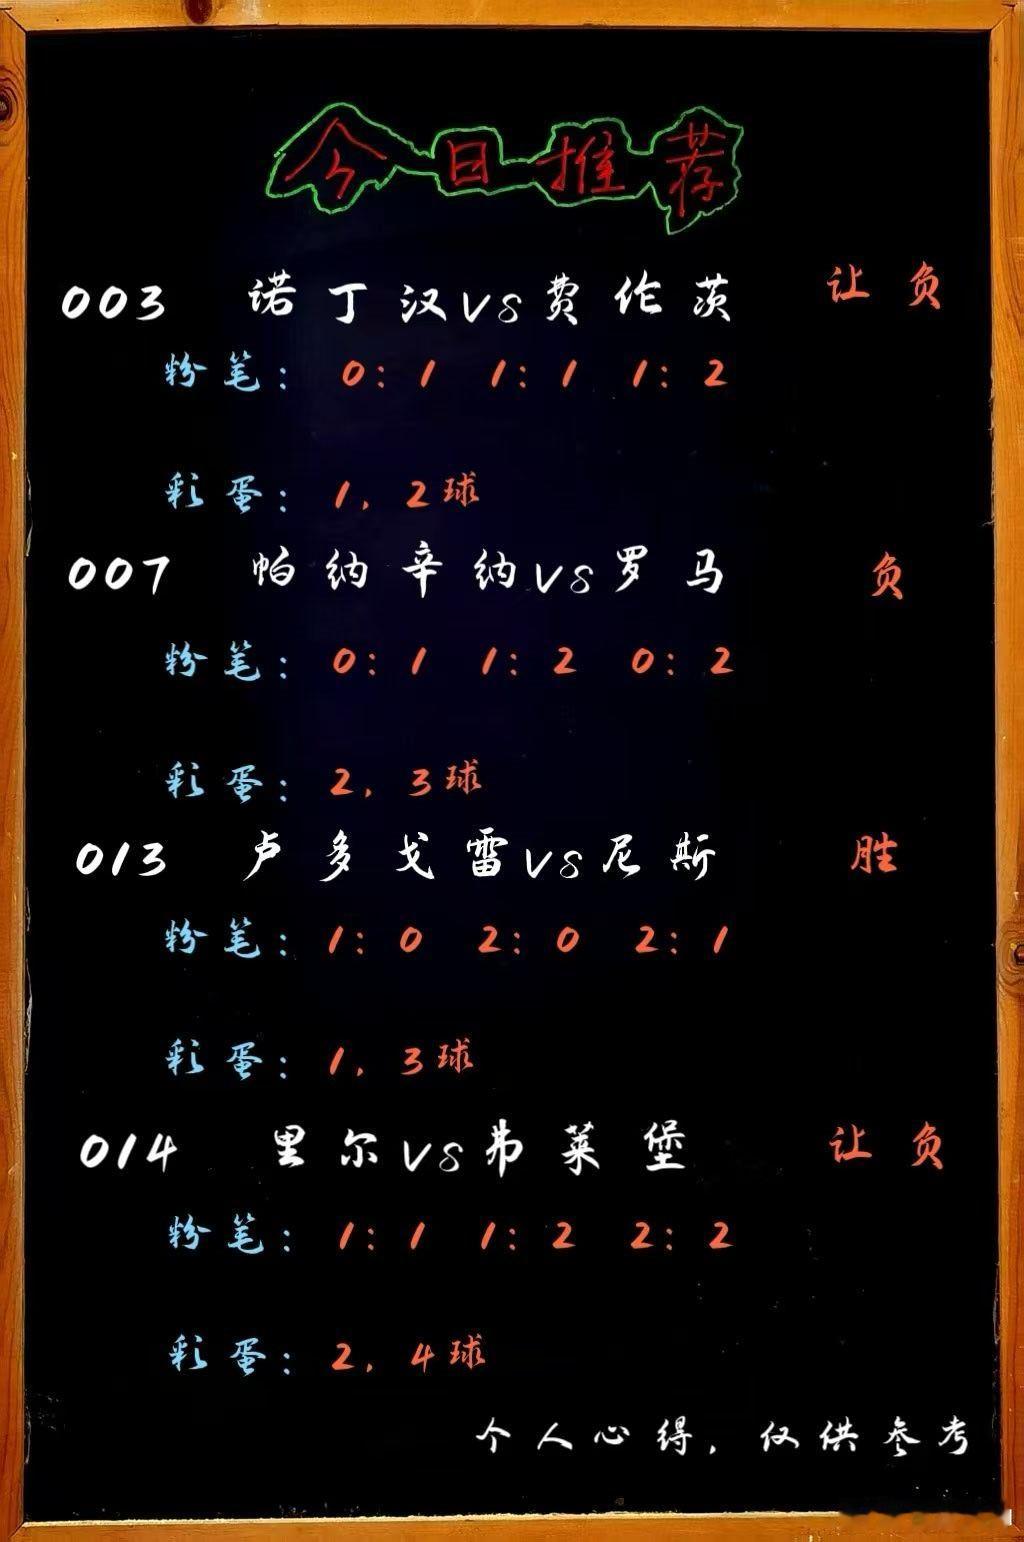 今日推荐
003 诺丁汉VS费伦茨 让负
粉笔: 0:1 1:1 1:2
彩蛋: 1, 2球
007 帕纳辛纳VS罗马 负
粉笔: 0:1 1:2 0:2
彩蛋: 2, 3球
013 卢多戈雷VS尼斯 胜
粉笔: 1:0 2:0 2:1
彩蛋: 1, 3球
014 里尔VS弗莱堡 让负
粉笔: 1:1 1:2 2:2
彩蛋: 2, 4球
个人心得, 仅供参考